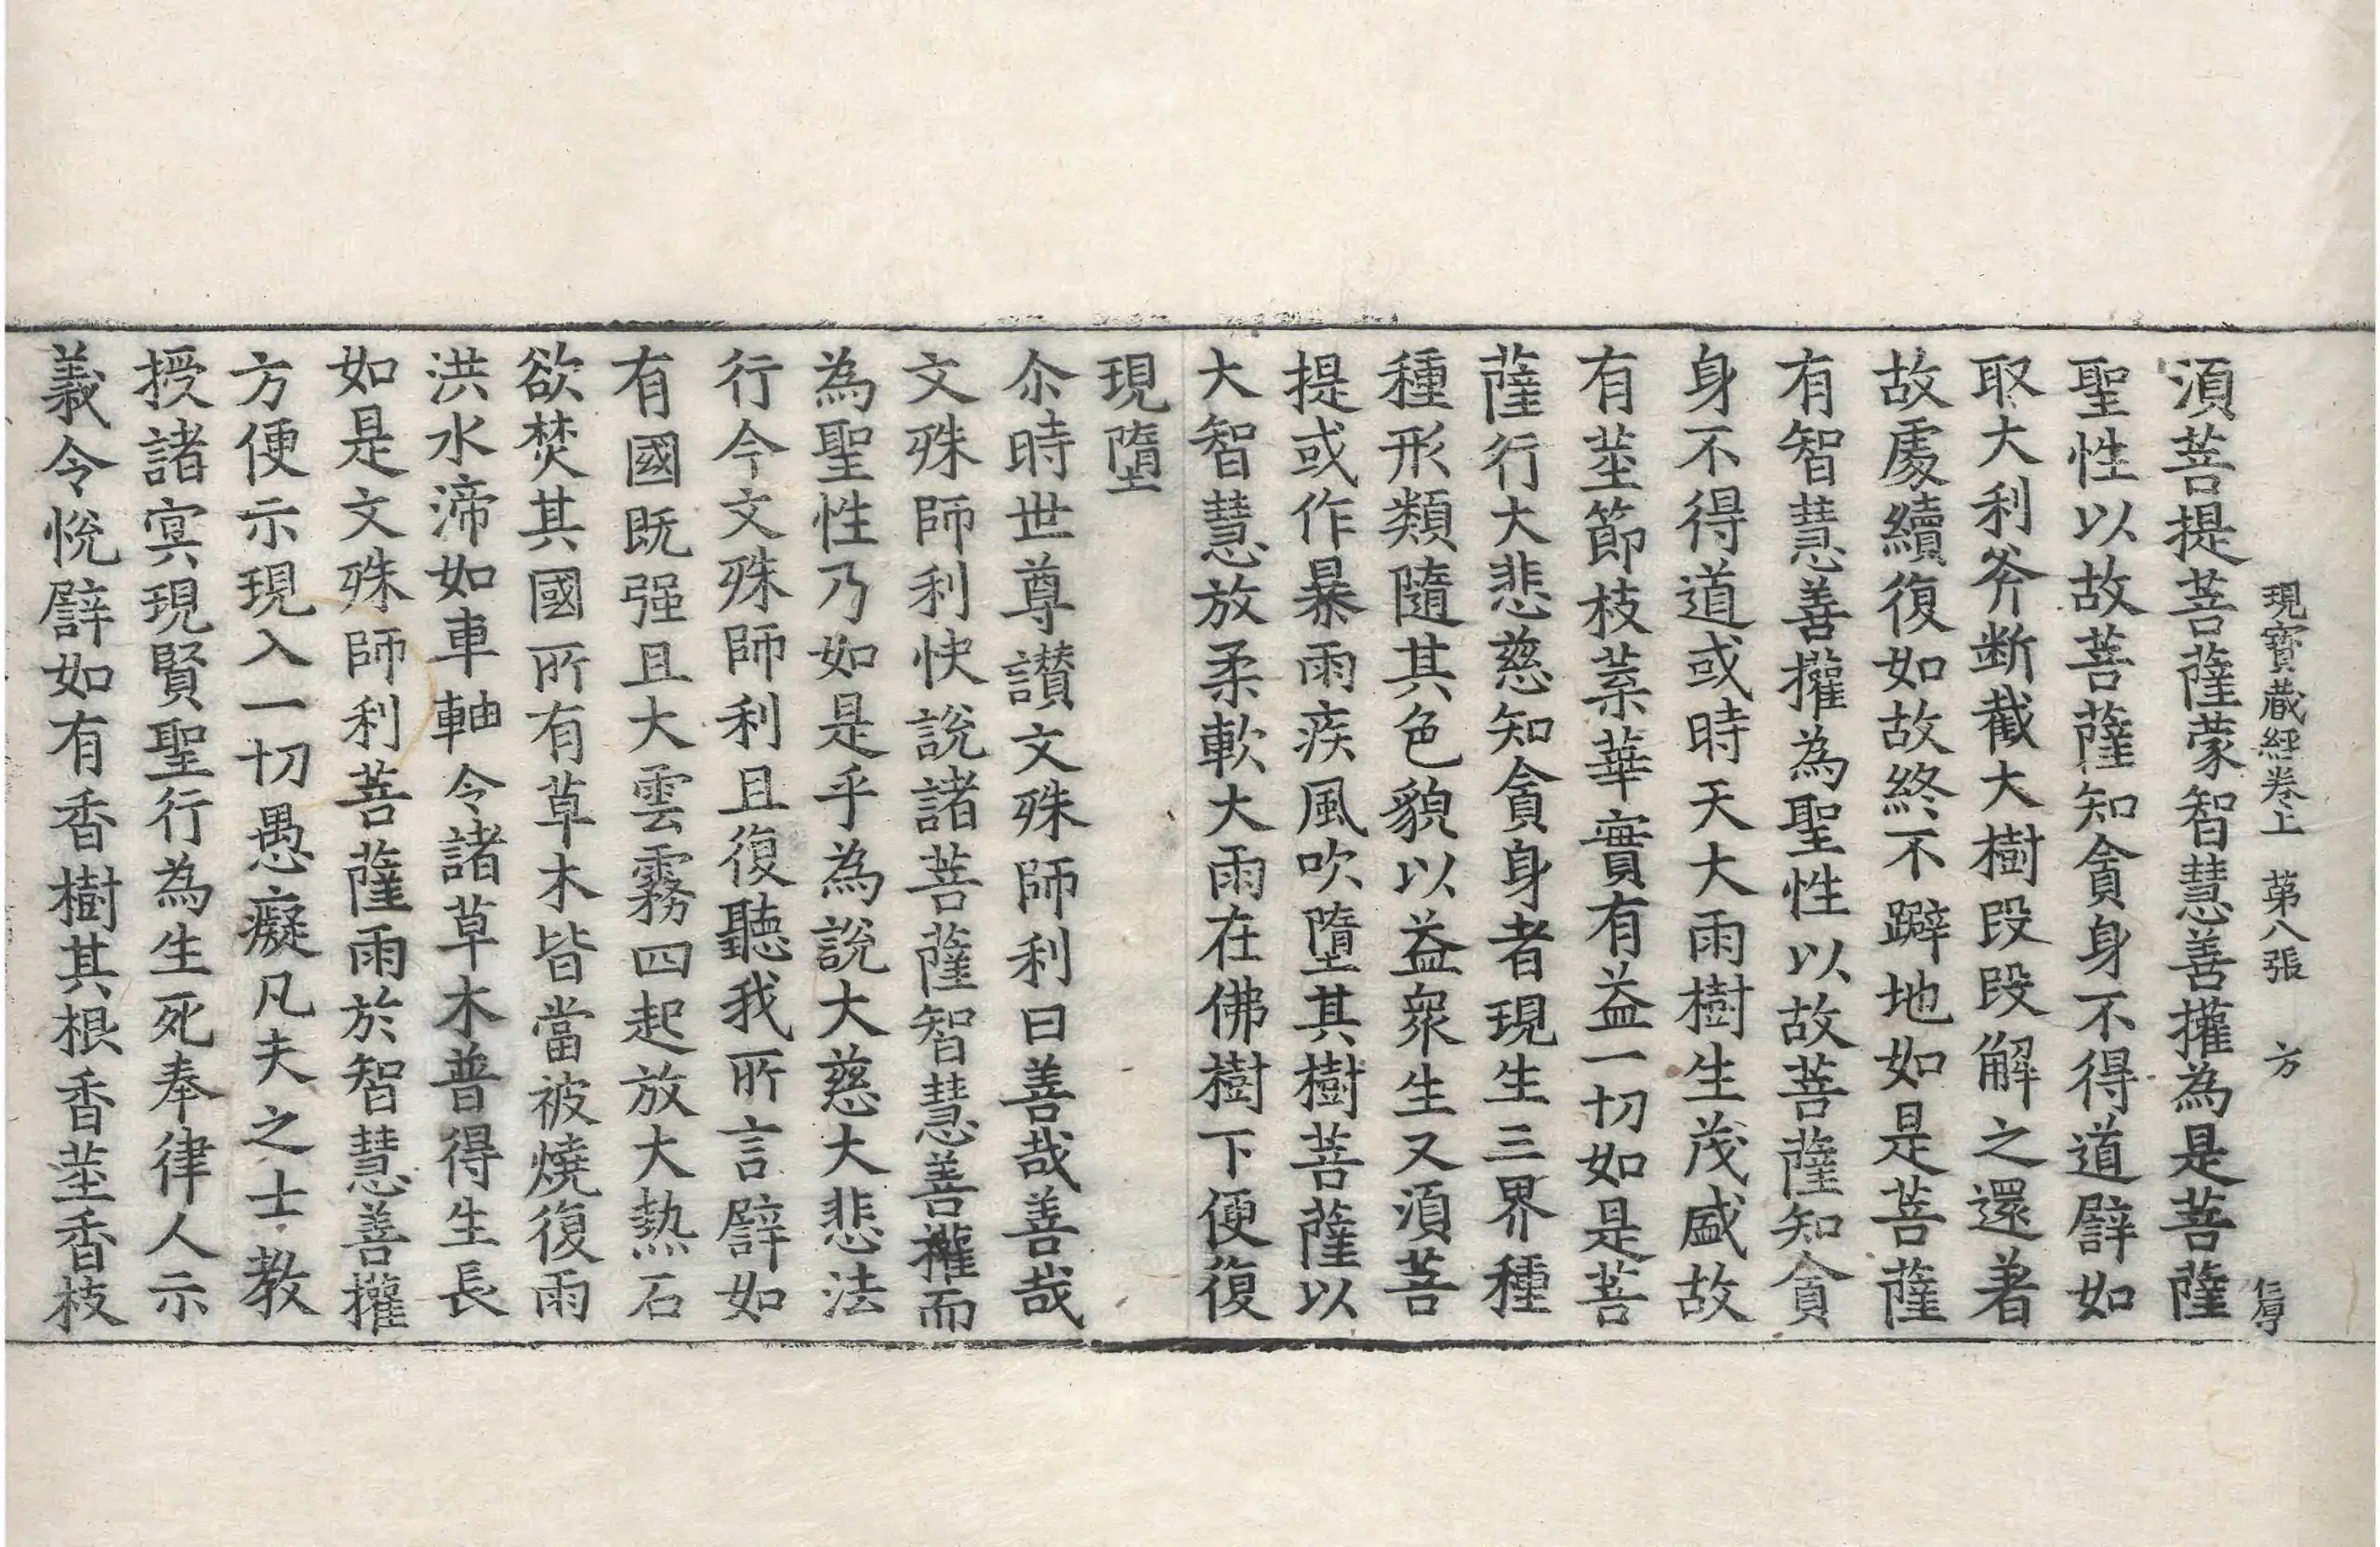 現寶藏經卷上 第八張 方
須菩提菩薩蒙智慧善攉為是菩薩
聖性以故菩薩知貪身不得道譬如
取大利斧斷截大樹段段解之還著
故處續復如故終不躃地如是菩薩
有智慧善攉為聖性以故菩薩知貪
身不得道或時天大雨樹生茂盛故
有莖節枝葉華實有益一切如是菩
薩行大悲慈知貪身者現生三界種
種形類隨其色貌以益衆生又須菩
提或作暴雨疾風吹墮其樹菩薩以
大智慧放柔軟大雨在佛樹下便復
現墮
尒時世尊讃文殊師利曰善哉善哉
文殊師利快說諸菩薩智慧善攉而
為聖性乃如是乎為說大慈大悲法
行今文殊師利且復聽我所言譬如
有國旣强且大雲霧四起放大熱石
欲焚其國所有草木皆當被燒復雨
洪水渧如車軸令諸草木普得生長
如是文殊師利菩薩雨於智慧善攉
方便示現入一切愚癡凡夫之士教
授諸冥現賢聖行為生死奉律人示
義令悅譬如有香樹其根香莖香枝